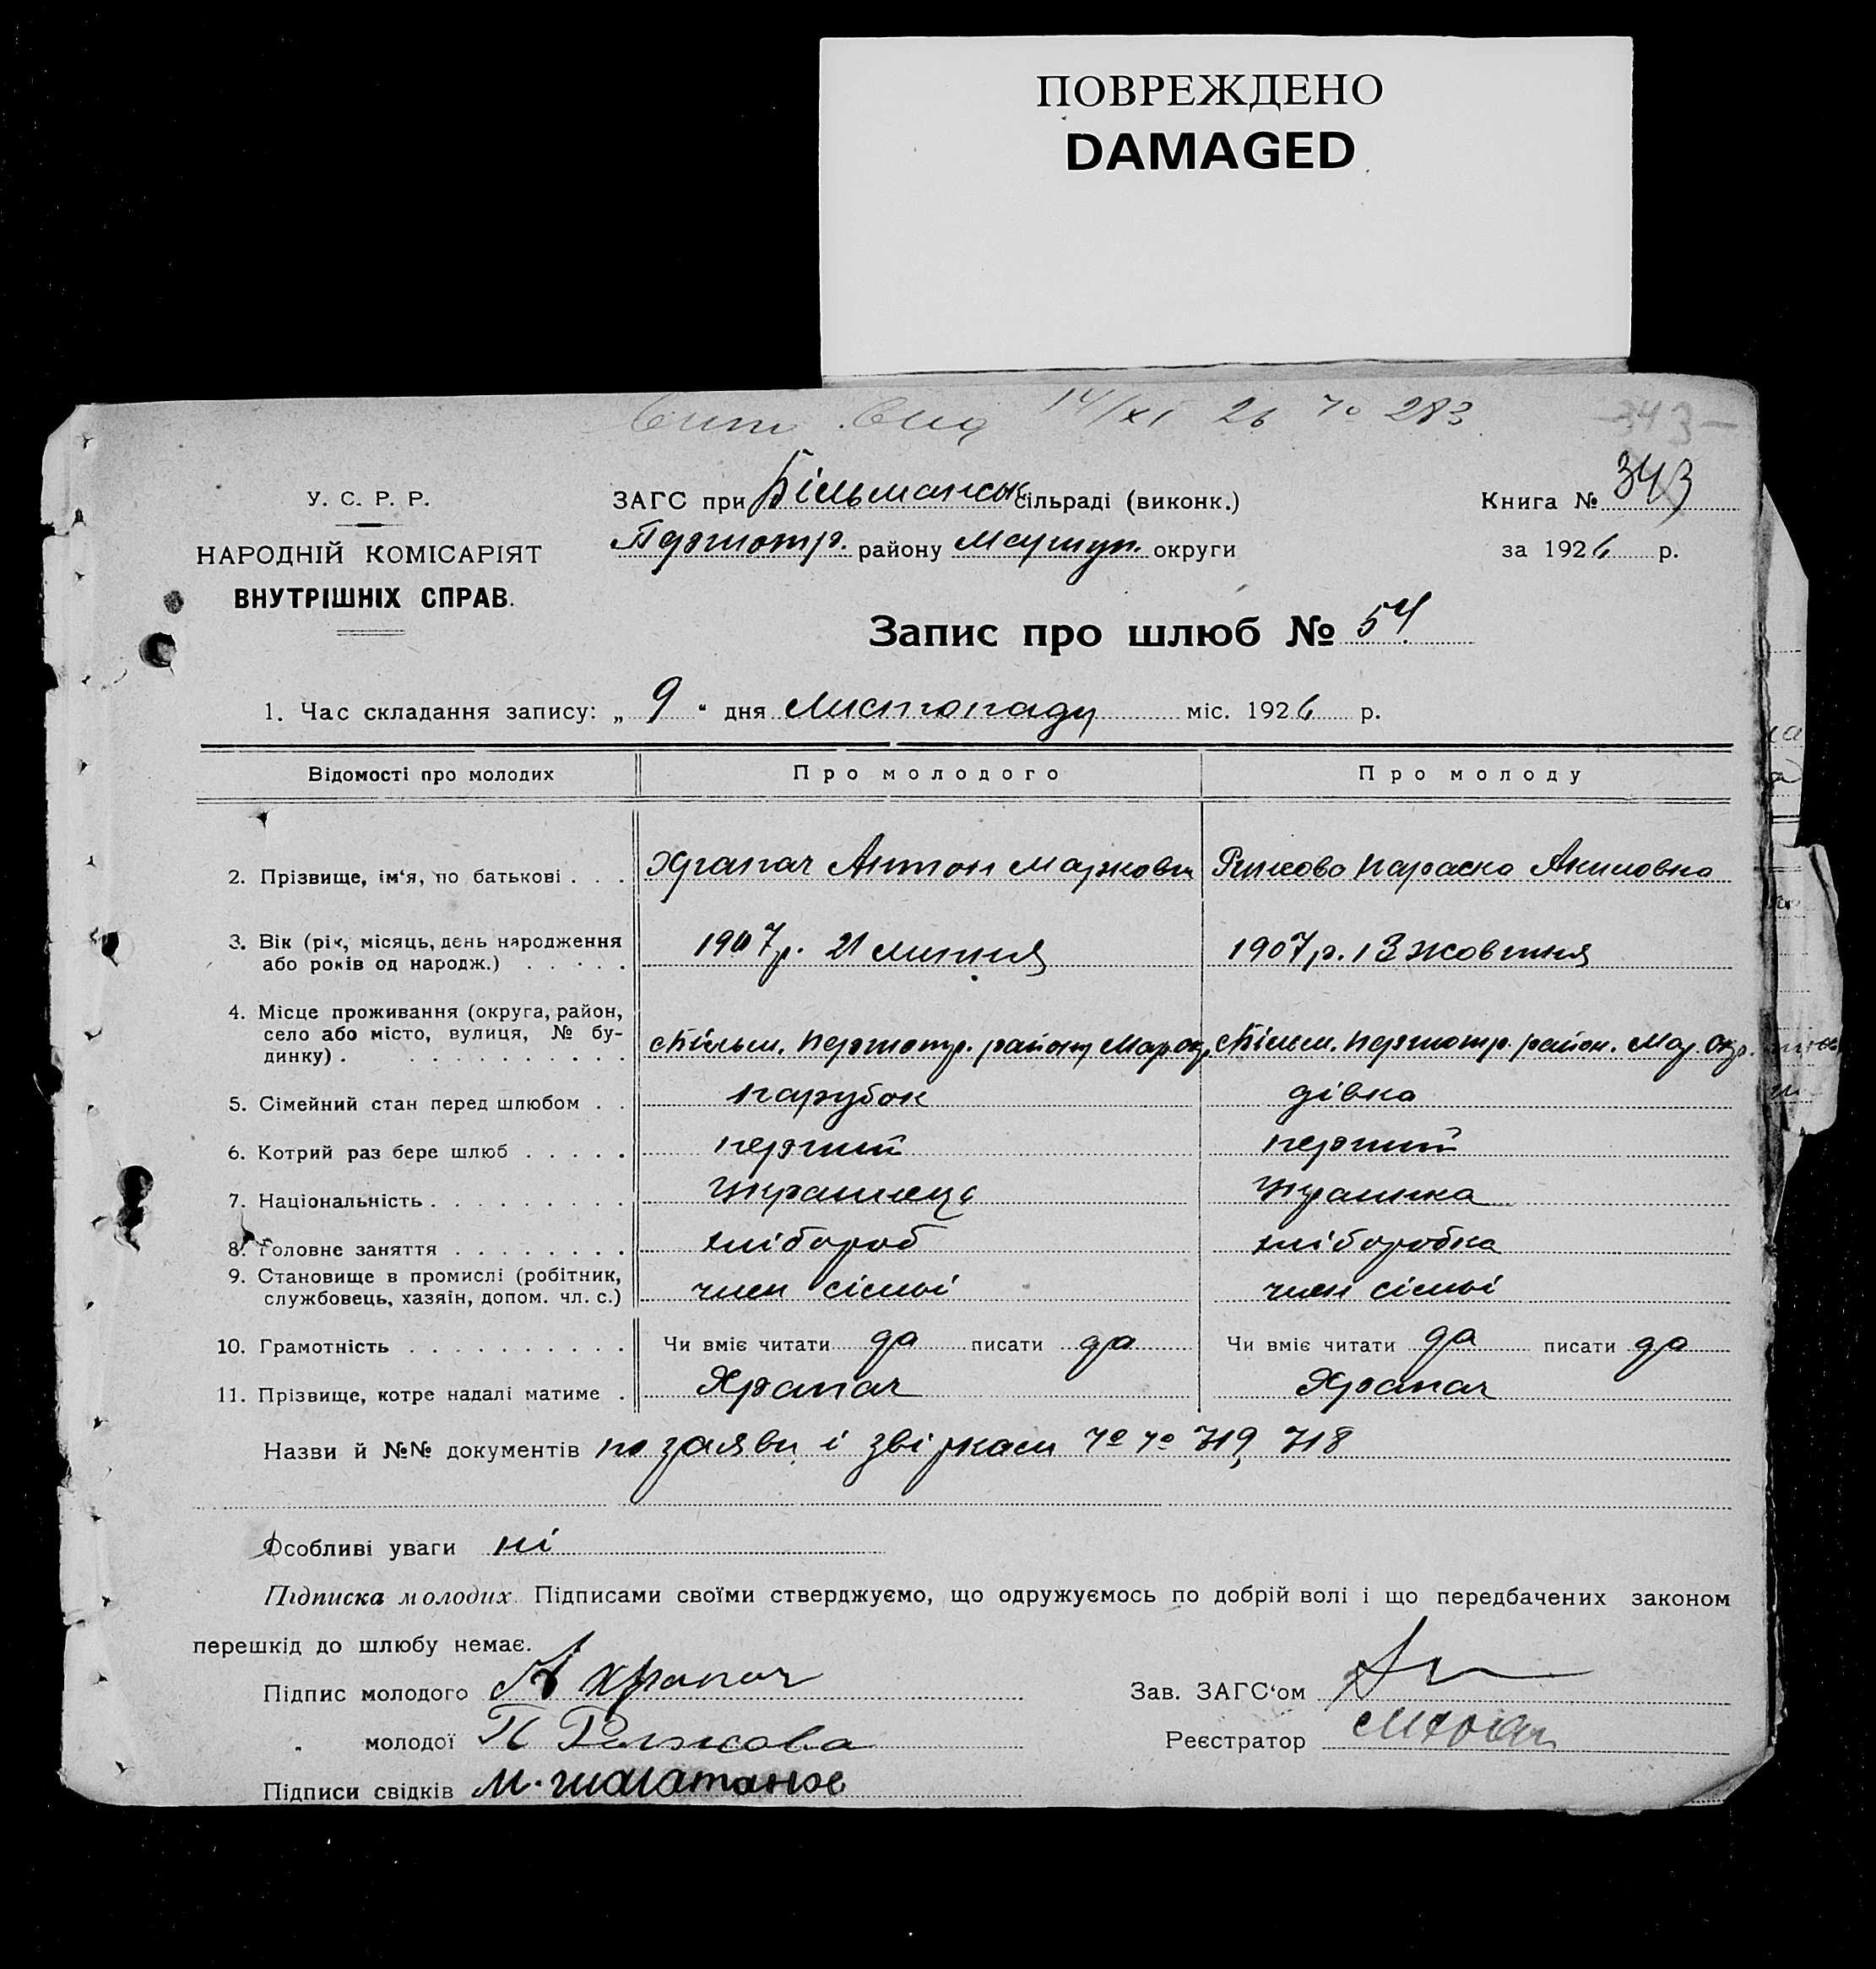 ПОВРЕЖДЕНО
DAMAGED
14/XI 26 № 283
343
У. С. Р. Р.
ЗАГС при Більманськ сільраді (виконк.)
Книга № 343
НАРОДНІЙ КОМІСАРІЯТ
району Маріуп. округи
за 1926 р.
ВНУТРІШНІХ СПРАВ.
Запис про шлюб № 54
1. Час складання запису: „ 9 “ дня Листопаду міс. 1926 р.
Відомості про молодих Про молодого Про молоду
2. Прізвище, ім‘я, по батькові . . . Храпач Антон Маркович Параска Якимовна
3. Вік (рік, місяць, день народження
або років од народж.) . . . . . 1907 р. 21 липня 1907 р. 13 жовтня
4. Місце проживання (округа, район,
село або місто, вулиця, № бу-
динку) . . . . . . . . . . . Більм. району Мар. окр. Більм. район. Мар. Окр.
5. Сімейний стан перед шлюбом . . парубок дівка
6. Котрий раз бере шлюб . . . . . перший перший
7. Національність . . . . . . . . . українець
8. Головне заняття . . . . . . . . хлібороб хліборобка
9. Становище в промислі (робітник,
службовець, хазяїн, допом. чл. с.) член сісмьі член сісмьі
10. Грамотність . . . . . . . . . . Чи вміє читати да писати да Чи вміє читати да писати да
11. Прізвище, котре надалі матиме . Храпач Храпач
Назви й №№ документів по заяви і звіркам №№ 719, 718
Особливі уваги ні
Підписка молодих. Підписами своїми стверджуємо, що одружуємось по добрій волі і що передбачених законом
перешкід до шлюбу немає.
Підпис молодого А Храпач
Зав. ЗАГС‘ом
„ молодої П
Реєстратор
Підписи свідків М.